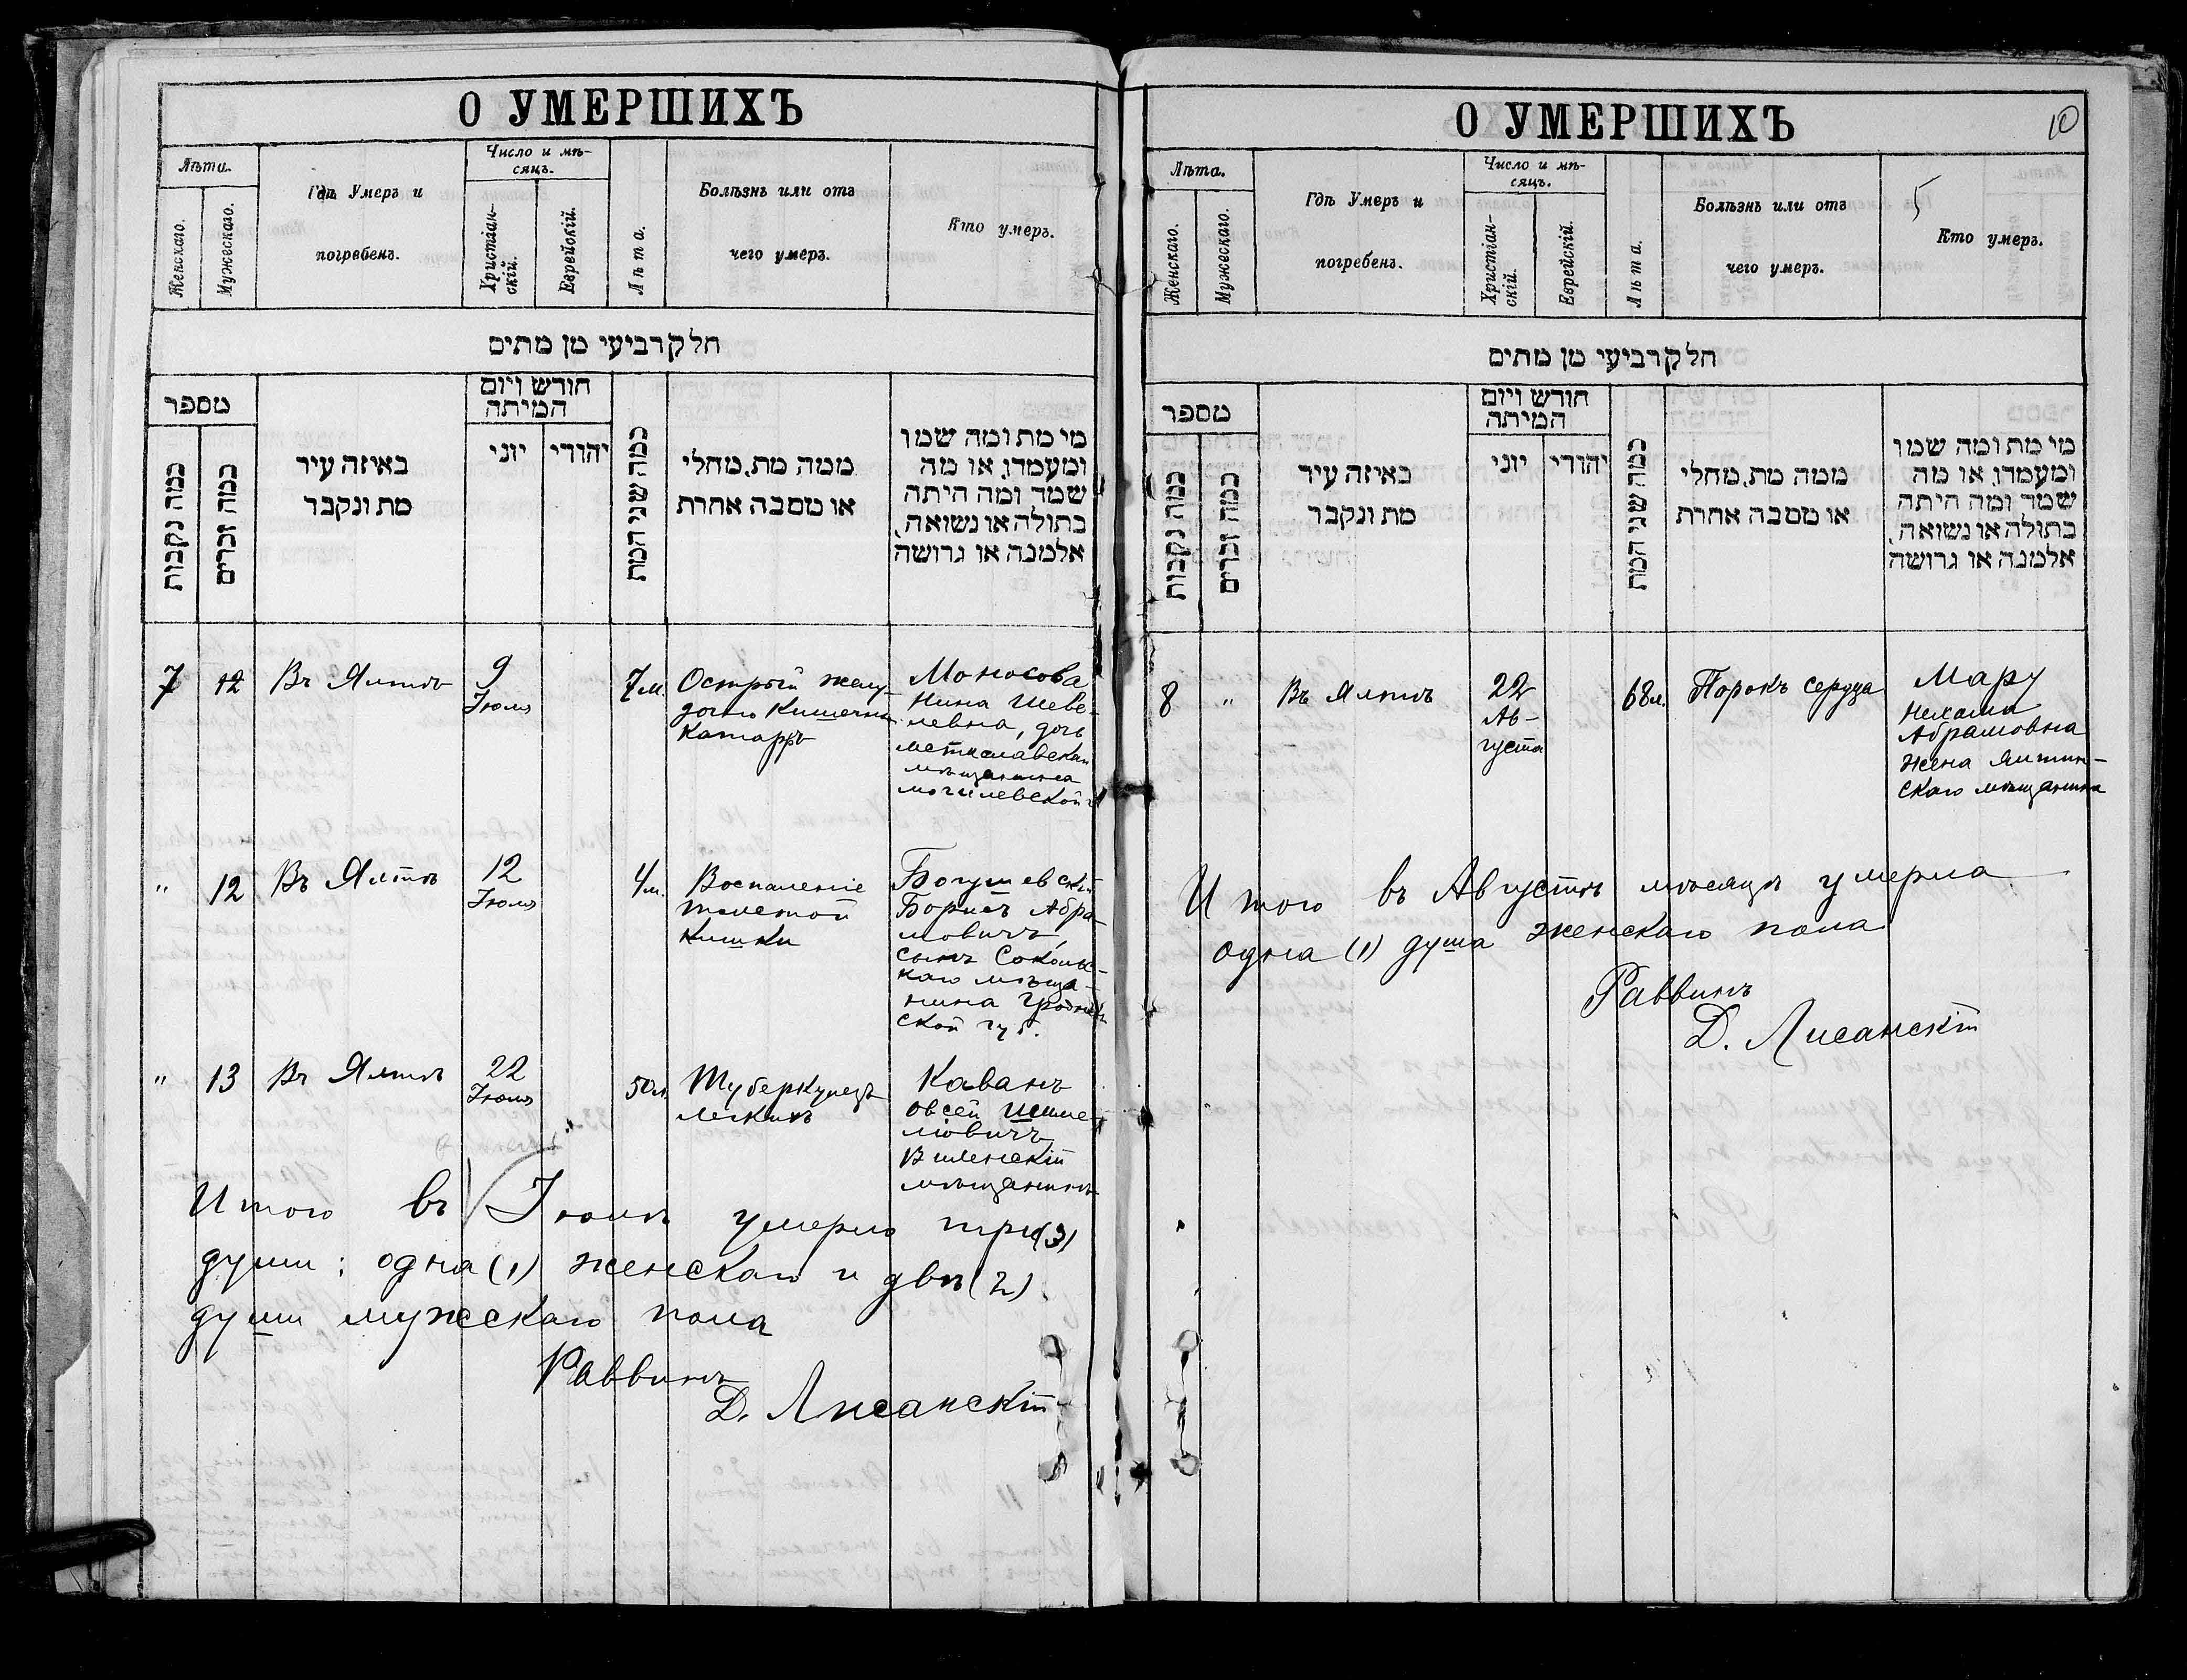 О УМЕРШИХЪ
Лѣта.
Женскаго.
Мужескаго.
Гдѣ Умеръ и
погребенъ.
Число и мѣ-
сяцъ.
Христіан-
скій.
Еврейскій.
Лѣта.
Болѣзнь или отъ
чего умеръ.
Кто умеръ.
חלק רביעי מן מתים
מספר
כמה נקבות
כמה זכרים
באיזה עיר
מת ונקבר
חודש ויום
המיתה
יוני
יהודי
כמה שני המת
ממה מת, מחלי
או מסבה אחרת
מי מת ומה שמו
ומעמדו, או מה
שמד ומה היתה
בתולה או נשואה,
אלמנה או גרושה
7
12
Въ Ялтѣ
9
Іюля
7 м.
Острый желу-
дочно Кишечный
Катарръ
Моносова
Нина Шеве-
левна, дочь
мстиславскаго
мѣщанина
могилевской г
"
12
Въ Ялтѣ
12
Іюля
4 м.
Воспаленіе
толстой
Кишки
Богушевскій
Борисъ Абра-
мовичъ,
сынъ Соколь-
каго мѣща-
нина Гроднен-
ской губ.
"
13
Въ Ялтѣ
22
Іюля
50 л.
Туберкулезъ
легкихъ
Каванъ
Овсей
Виленскій
мѣщанинъ
Итого въ Іюлѣ умерло три (3)
души: одна (1) женскаго и двѣ (2)
души мужескаго пола
Раввинъ
Д. Лисанскій
О УМЕРШИХЪ
10
5
Лѣта.
Женскаго.
Мужескаго.
Гдѣ Умеръ и
погребенъ.
Число и мѣ-
сяцъ.
Христіан-
скій.
Еврейскій.
Лѣта.
Болѣзнь или отъ
чего умеръ.
Кто умеръ.
חלק רביעי מן מתים
מספר
כמה נקבות
כמה זכרים
באיזה עיר
מת ונקבר
חודש ויום
המיתה
יוני
יהודי
כמה שני המת
ממה מת, מחלי
או מסבה אחרת
מי מת ומה שמו
ומעמדו, או מה
שמד ומה היתה
בתולה או נשואה,
אלמנה או גרושה
8
"
Въ Ялтѣ
22
Ав-
густа
68 л.
Порокъ сердца
Мару
Нехама
Абрамовна
жена Ялтин-
скаго мѣщанина
Итого въ Августѣ мѣсяцѣ умерла
одна (1) душа женскаго пола
Раввинъ
Д. Лисанскій